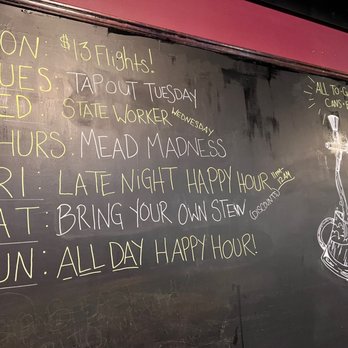 ON: $13 Flights!
UES: TAPOUT TUESDAY
ED STATE WORKER WEDNESDAY
HURS: MEAD MADNESS
RI: LATE NIGHT HAPPY HOUR 
AT: BRING YOUR OWN STEIN (DISCOUNT)
UN: ALL DAY HAPPY HOUR!
ALL TO-G
CANS